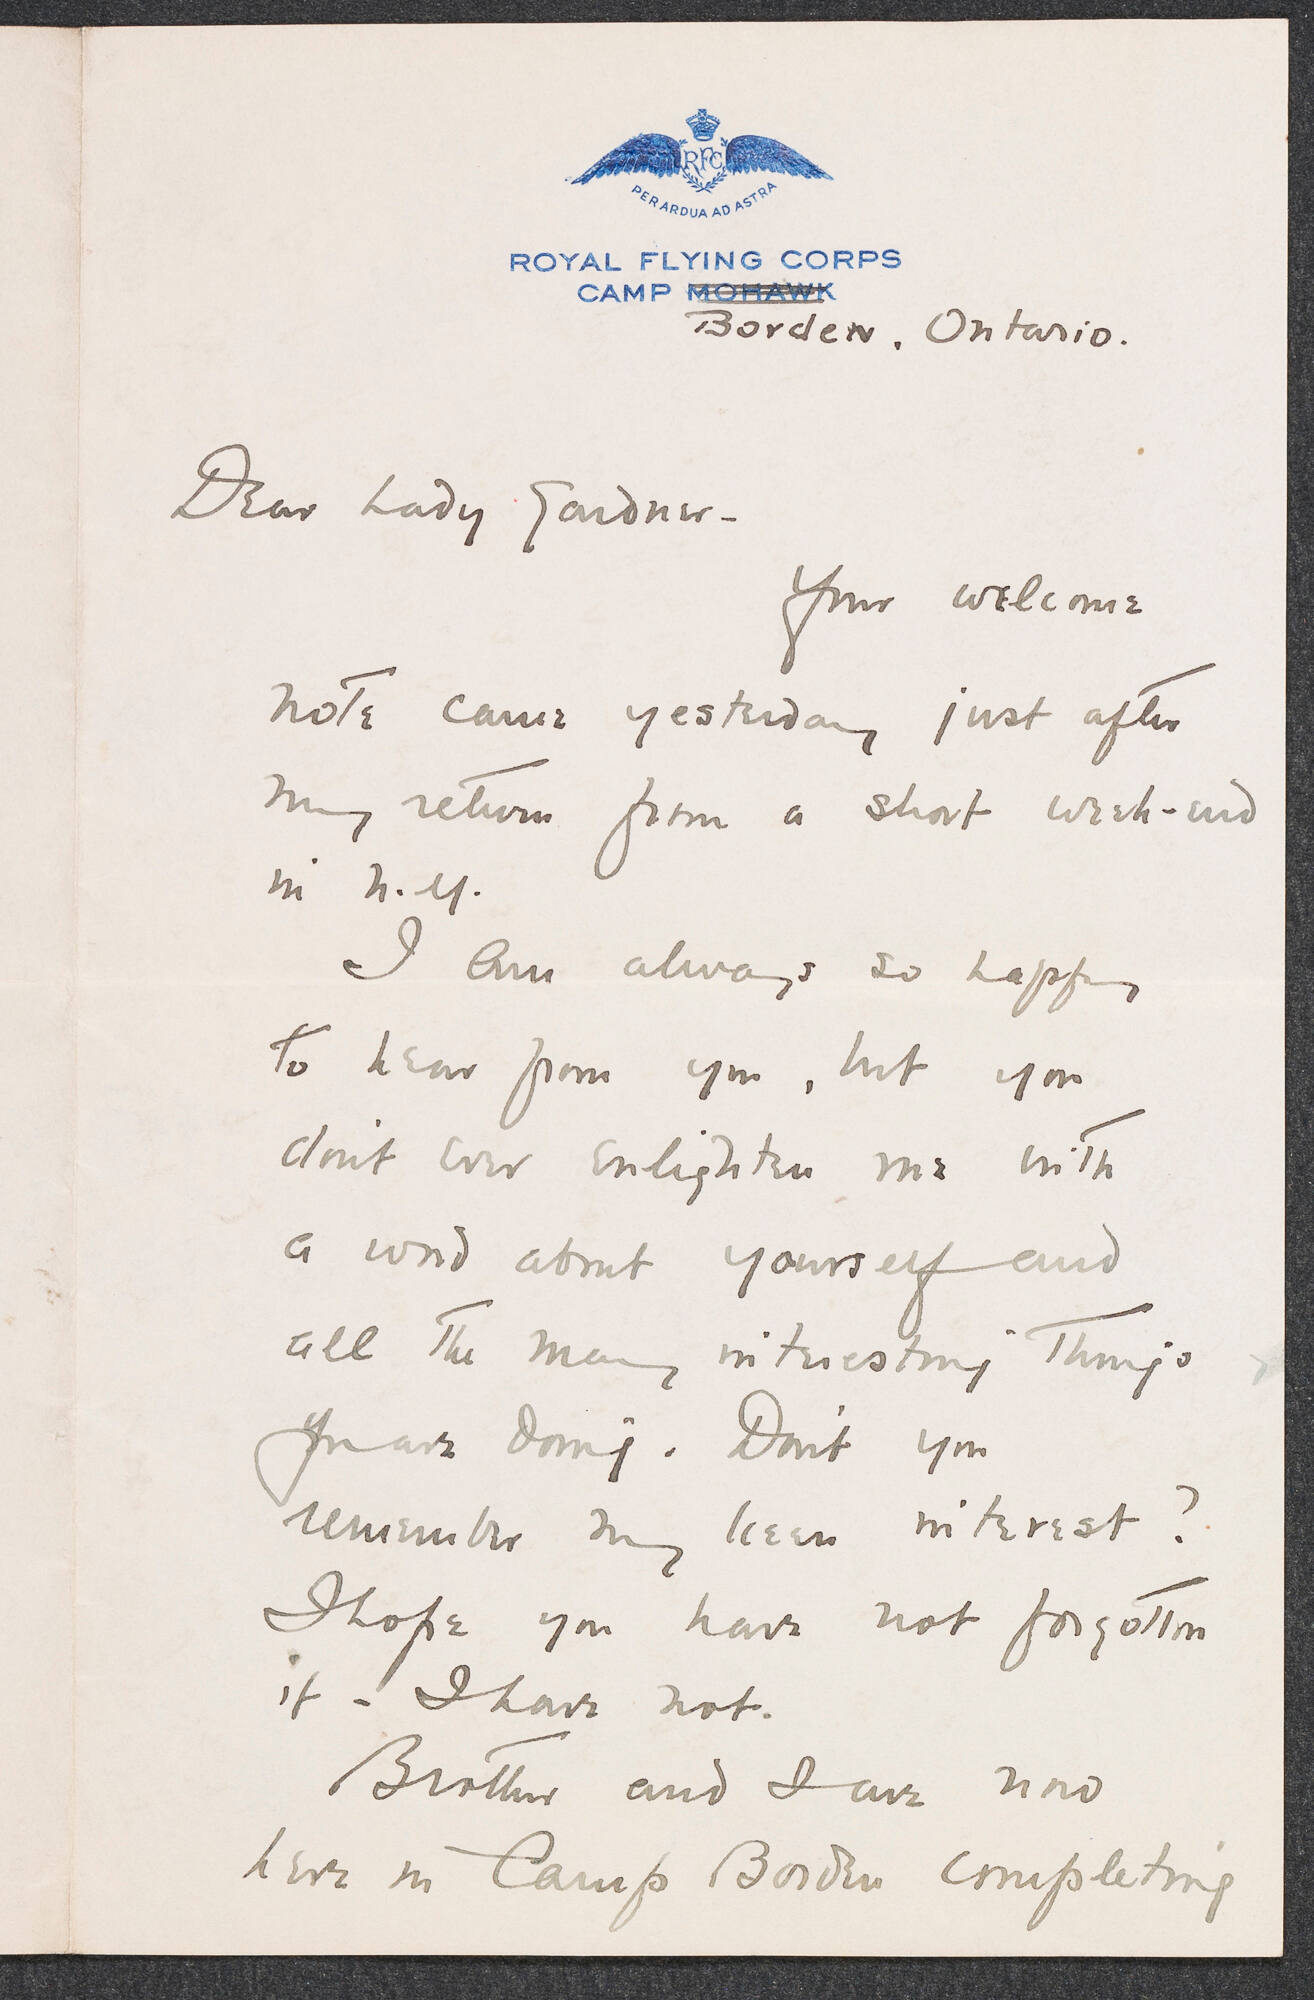 RFC
PER ARDUA AD ASTRA
ROYAL FLYING CORPS
CAMP MOHAWK
Borden, Ontario.
Dear Lady Gardner-
Your welcome
note came yesterday just after
my return from a short week-end
in N.Y.
I am always so happy
to hear from you, but you
don't ever enlighten me with
a word about yourself and
all the many interesting things
you are doing. Don't you
remember my keen interest?
I hope you have not forgotten
it - I have not.
Brother and I are now
here in Camp Borden completing